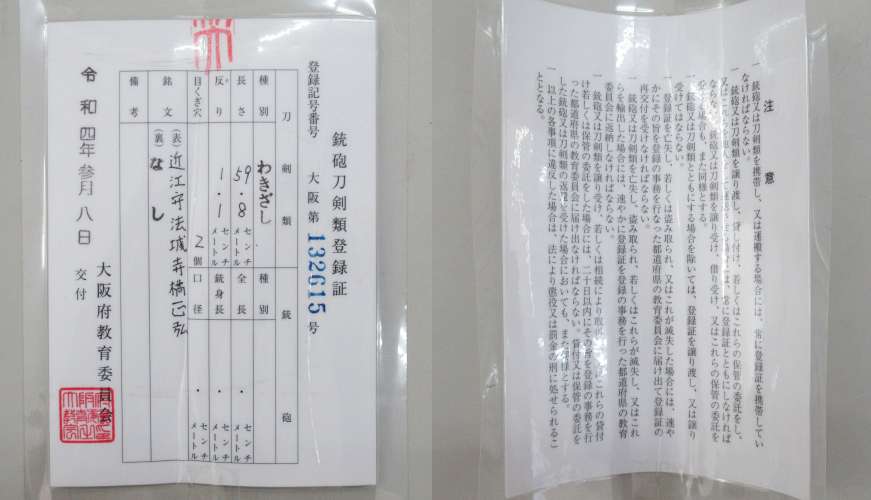 銃砲刀剣類登録証
登録記号番号 大阪第 132615 号
刀剣類
銃砲
種別 わきざし
長さ 59.8 センチメートル
反り 1.1 センチメートル
目くぎ穴 2個
種別
全長 ・ センチメートル
銃身長 ・ センチメートル
口径 ・ センチメートル
銘文 (表) 近江守法城寺橘正弘
(裏) なし
備考
令和四年参月八日 交付
大阪府教育委員会
注意
一 銃砲又は刀剣類を携帯し、又は運搬する場合には、常に登録証を携帯してい
なければならない。
一 銃砲又は刀剣類を譲り渡し、貸し付け、若しくはこれらの保管の委託をし、
常に登録証とともにしなければ
ならない。銃砲又は刀剣類を譲り受け、借り受け、又はこれらの保管の委託を
場合も、また同様とする。
銃砲又は刀剣類とともにする場合を除いては、登録証を譲り渡し、又は譲り
受けてはならない。
一 登録証を亡失し、若しくは盗み取られ、又はこれが滅失した場合には、速や
かにその旨を登録の事務を行なった都道府県の教育委員会に届け出て登録証の
再交付を受けなければならない。
一 銃砲又は刀剣類を亡失し、盗み取られ、若しくはこれらが滅失し、又はこれ
らを輸出した場合には、速やかに登録証を登録の事務を行った都道府県の教育
委員会に返納しなければならない。
一 銃砲又は刀剣類を譲り受け、若しくは相続により取得し、これらの貸付
け若しくは保管の委託をした場合には、二十日以内にその旨を登録の事務を行
った都道府県の教育委員会に届け出なければならない。貸付又は保管の委託
した銃砲又は刀剣類の返還を受けた場合においても、また同様とする。
一 以上の各事項に違反した場合は、法により懲役又は罰金の刑に処せられるこ
ととなる。